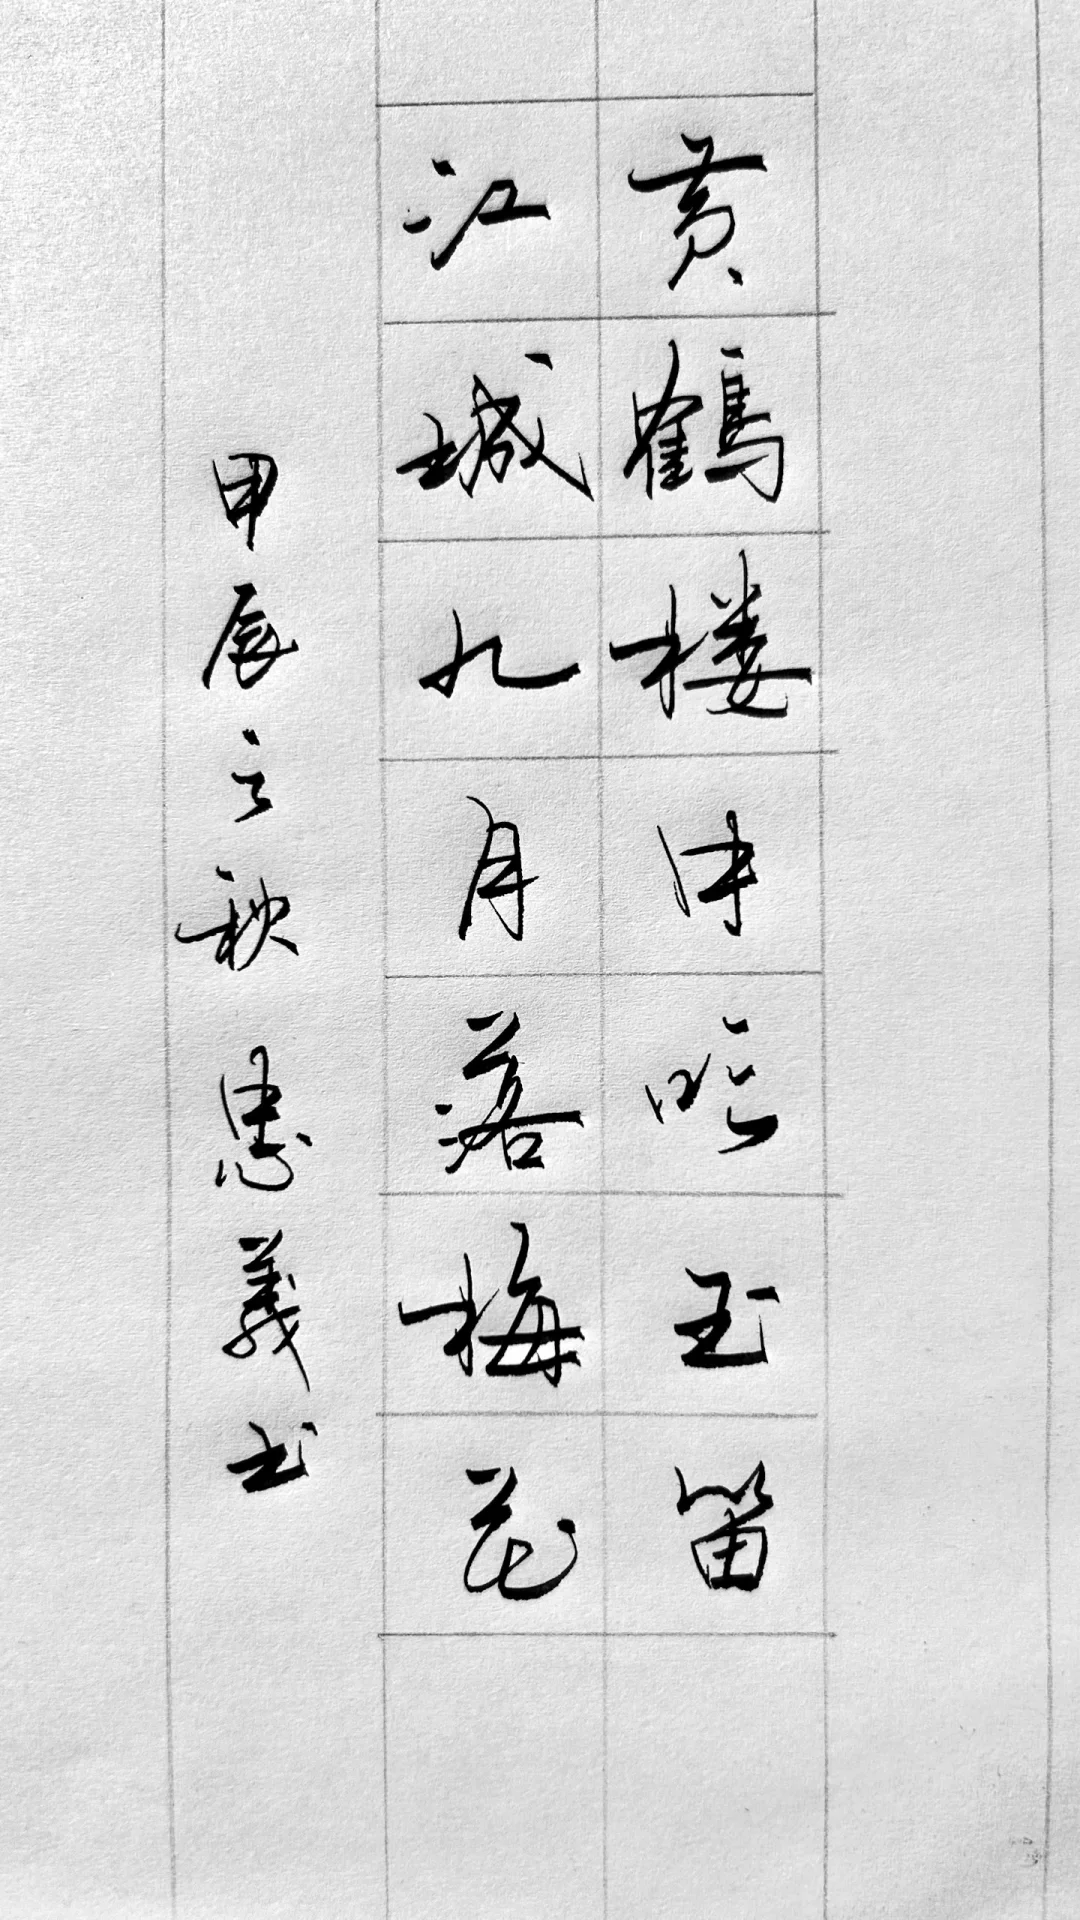 黄鶴楼中吹玉笛
江城九月落梅花
甲辰之秋 忠義书